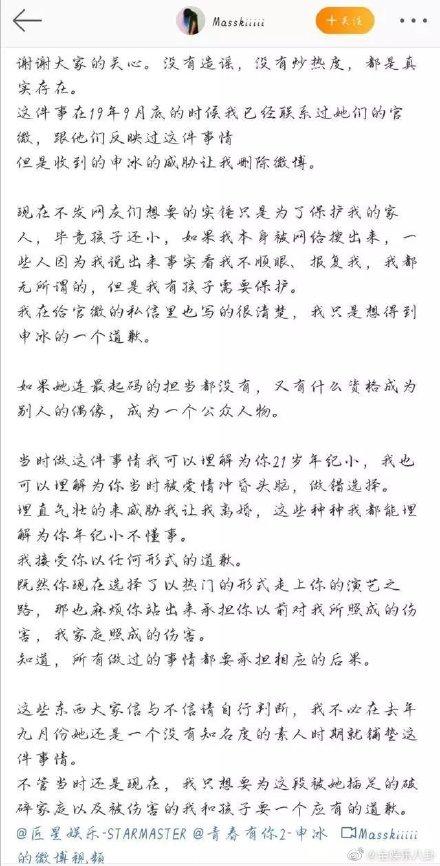 Masskiiiii
+关注
谢谢大家的关心。没有造谣，没有炒热度，都是真
实存在。
这件事在19年9月底的时候我已经联系过她们的官
微，跟他们反映过这件事情
但是收到的申冰的威胁让我删除微博。
现在不发网友们想要的实锤只是为了保护我的家
人，毕竟孩子还小，如果我本身被网络搜出来，一
些人因为我说出来事实看我不顺眼、报复我，我都
无所谓的，但是我有孩子需要保护。
我在给官微的私信里也写的很清楚，我只是想得到
申冰的一个道歉。
如果她连最起码的担当都没有，又有什么资格成为
别人的偶像，成为一个公众人物。
当时做这件事情我可以理解为你21岁年纪小，我也
可以理解为你当时被爱情冲昏头脑，做错选择。
理直气壮的来威胁我让我离婚，这些种种我都能理
解为你年纪小不懂事。
我接受你以任何形式的道歉。
既然你现在选择了以热门的形式走上你的演艺之
路，那也麻烦你站出来承担你以前对我所照成的伤
害，我家庭照成的伤害。
知道，所有做过的事情都要承担相应的后果。
这些东西大家信与不信请自行判断，我不必在去年
九月份她还是一个没有知名度的素人时期就铺垫这
件事情。
不管当时还是现在，我只想要为这段被她插足的破
碎家庭以及被伤害的我和孩子要一个应有的道歉。
@匠星娱乐-STARMASTER @青春有你2-申冰 Masskiiiii
的微博视频
@全娱乐八卦